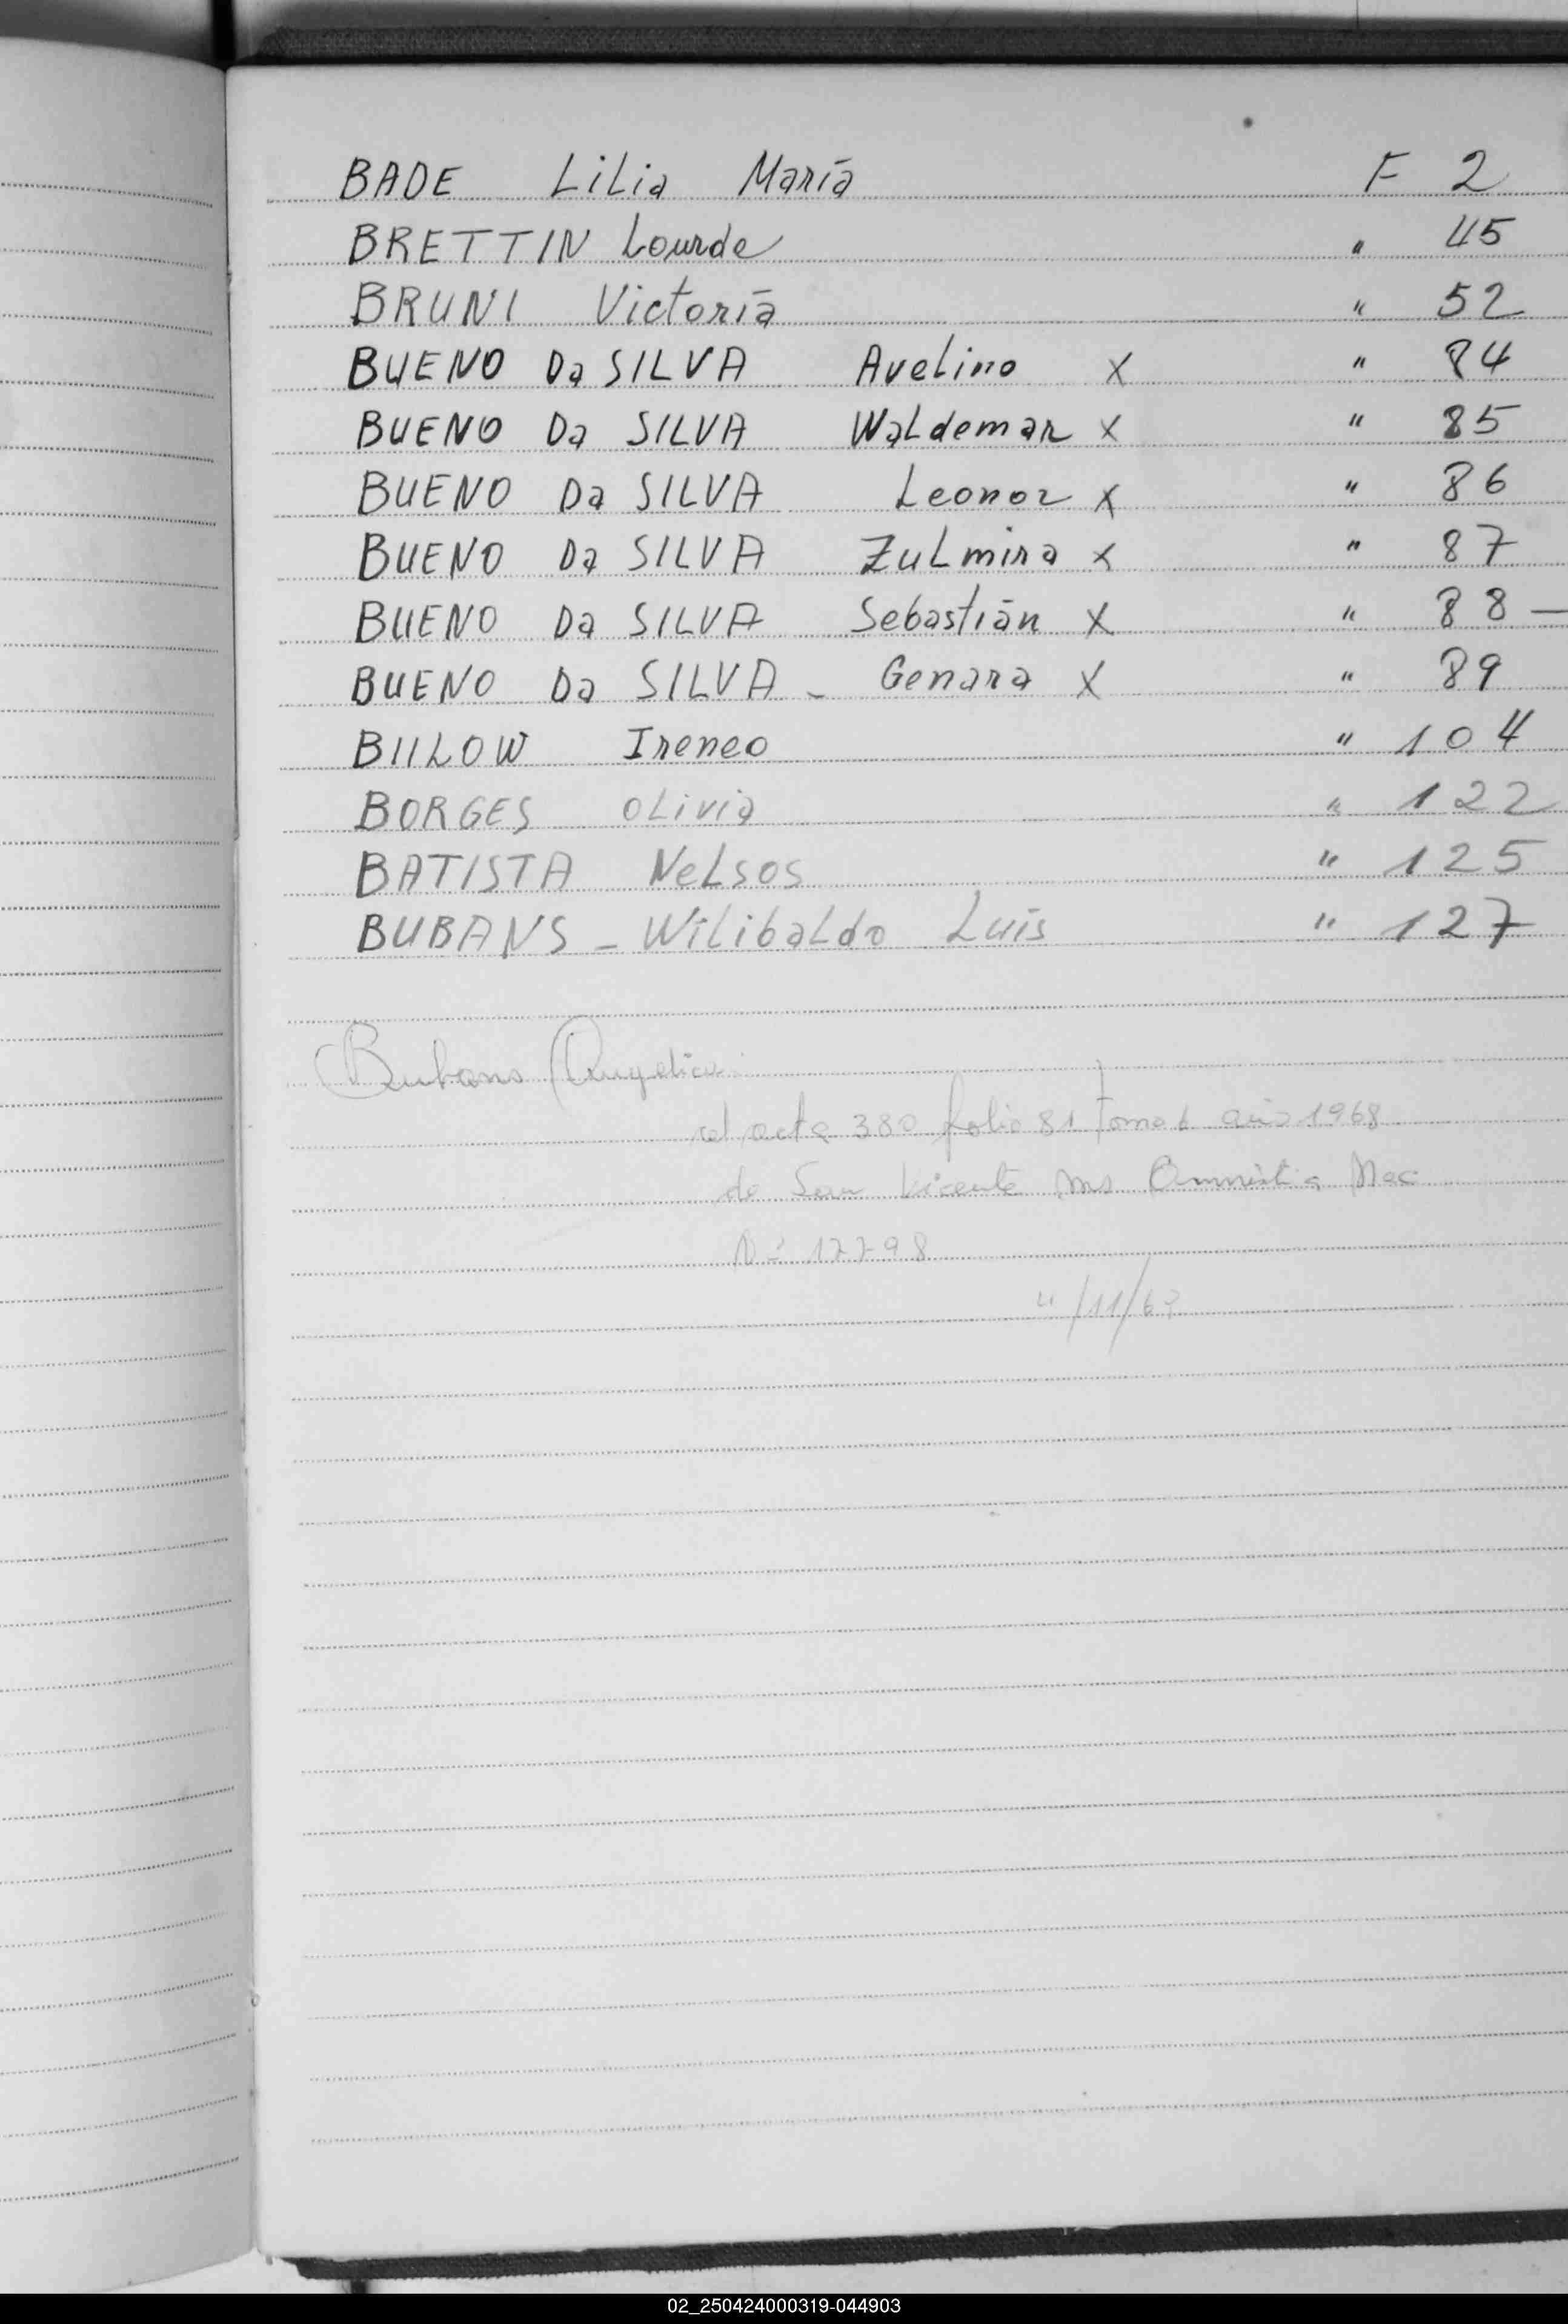 BADE Lilia María F 2
BRETTIN Lourde " 45
BRUNI Victoria " 52
BUENO Da SILVA Avelino X " 84
BUENO Da SILVA Waldemar X " 85
BUENO Da SILVA Leonor X " 86
BUENO Da SILVA Zulmira X " 87
BUENO Da SILVA Sebastián X " 88 —
BUENO Da SILVA - Genara X " 89
BIILOW Ireneo " 104
BORGES Olivia " 122
BATISTA Nelsos " 125
BUBANS - Wilibaldo Luis " 127
Bubans Angelica
acta 380 folio 81 tomo año 1968
de San Vicente Mns Amnistia Nac
Nº 17798
/11/
02_250424000319-044903